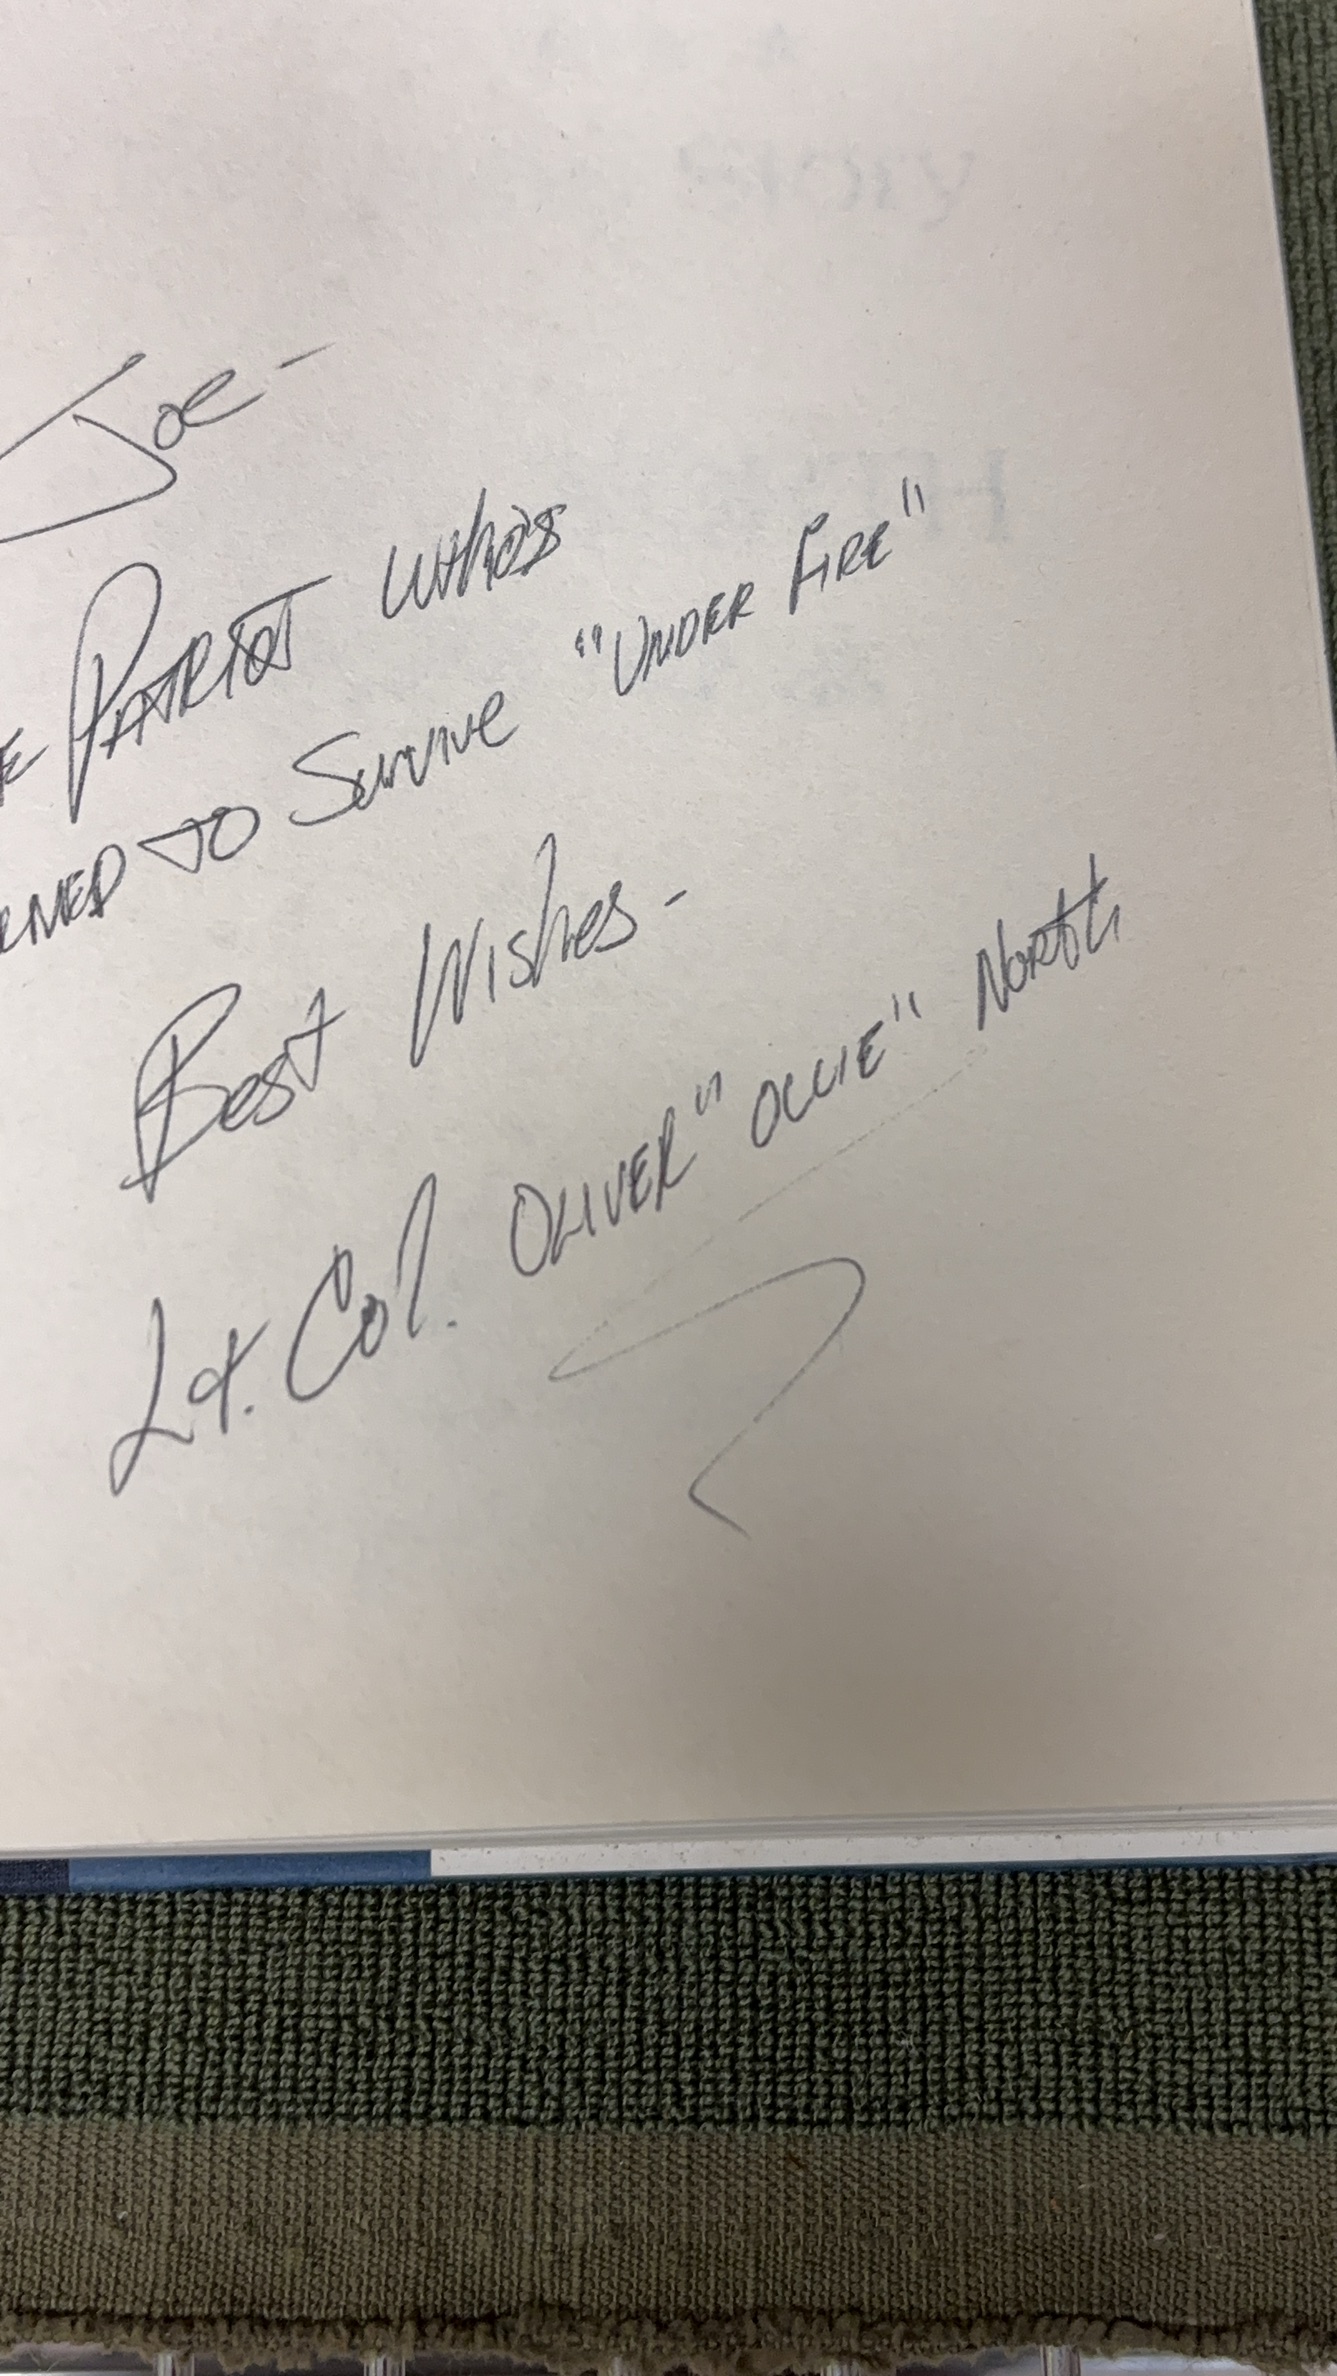 Joe-
E PATRIOT who's
RNED TO Survive "UNDER FIRE"
Best Wishes-
Lt. Col. OLIVER "OLLIE" NORTH